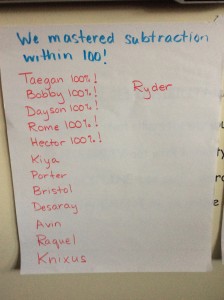 We mastered subtraction
within 100!
Taegan 100%!
Bobby 100%!
Dayson 100%!
Rome 100%!
Hector 100%!
Kiya
Porter
Bristol
Desaray
Avin
Raquel
Knixus
Ryder